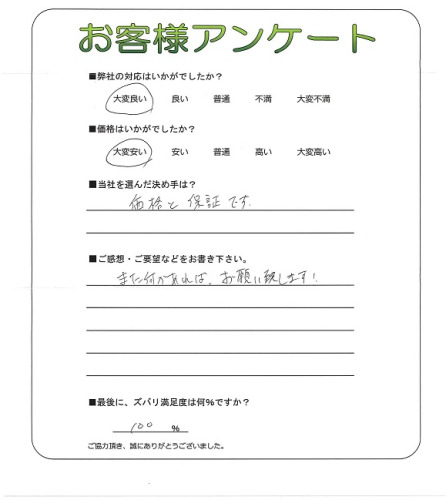 お客様アンケート
■弊社の対応はいかがでしたか？
大変良い 良い 普通 不満 大変不満
■価格はいかがでしたか？
大変安い 安い 普通 高い 大変高い
■当社を選んだ決め手は？
価格と保証です.
■ご感想・ご要望などをお書き下さい。
また何かあれば、お願い致します!
■最後に、ズバリ満足度は何%ですか？
100 %
ご協力頂き、誠にありがとうございました。